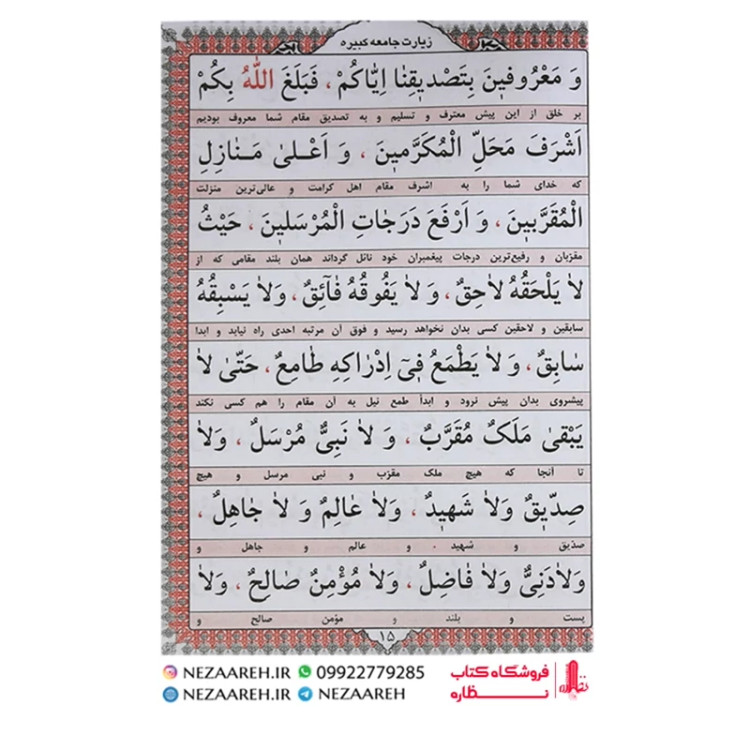 زیارت جامعه کبیره
وَ مَعْرُوفینَ بِتَصْدیقِنٰا اِیّٰاکُمْ ، فَبَلَغَ اللّٰهُ بِکُمْ
بر خلق از این پیش معترف و تسلیم و به تصدیق مقام شما معروف بودیم
اَشْرَفَ مَحَلِّ الْمُکَرَّمینَ ، وَ اَعْـلیٰ مَـنٰازِلِ
که خدای شما را به اشرف مقام اهل کرامت و عالی‌ترین منزلت
الْمُقَرَّبینَ ، وَ اَرْفَعَ دَرَجٰاتِ الْمُرْسَلینَ ، حَیْثُ
مقرّبان و رفیع‌ترین درجات پیغمبران خود نائل گرداند همان بلند مقامی که از
لاٰ یَلْحَقُهُ لاٰحِقٌ ، وَ لاٰ یَفُوقُهُ فٰآئِقٌ ، وَلاٰ یَسْبِقُهُ
سابقین و لاحقین کسی بدان نخواهد رسید و فوق آن مرتبه احدی راه نیابد و ابدا
سٰابِقٌ ، وَ لاٰ یَطْمَعُ فیٓ اِدْرٰاکِهِ طٰامِعٌ ، حَتّیٰ لاٰ
پیشروی بدان پیش نرود و ابداً طمع نیل به آن مقام را هم کسی نکند
یَبْقیٰ مَلَکٌ مُقَرَّبٌ ، وَ لاٰ نَبِیٌّ مُرْسَلٌ ، وَلاٰ
تا آنجا که هیچ ملک مقرّب و نبی مرسل و هیچ
صِدّیقٌ وَلاٰ شَهیدٌ ، وَلاٰ عٰالِمٌ وَ لاٰ جٰاهِلٌ ،
صدّیق و شهید . و عالم و جاهل و
وَلاٰدَنِیٌّ وَلاٰ فٰاضِلٌ ، وَلاٰ مُؤْمِنٌ صٰالِحٌ ، وَلاٰ
پست و بلند و مؤمن صالح و
۱۵
NEZAAREH.IR 09922779285
NEZAAREH.IR NEZAAREH
فروشگاه کتاب
نـظاره